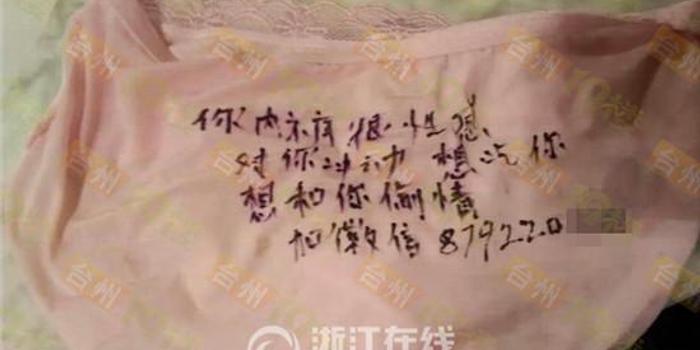 你内衣库很性感、
对你冲动 想泡你
想和你偷情
加微信 879220
台州19楼
浙江在线